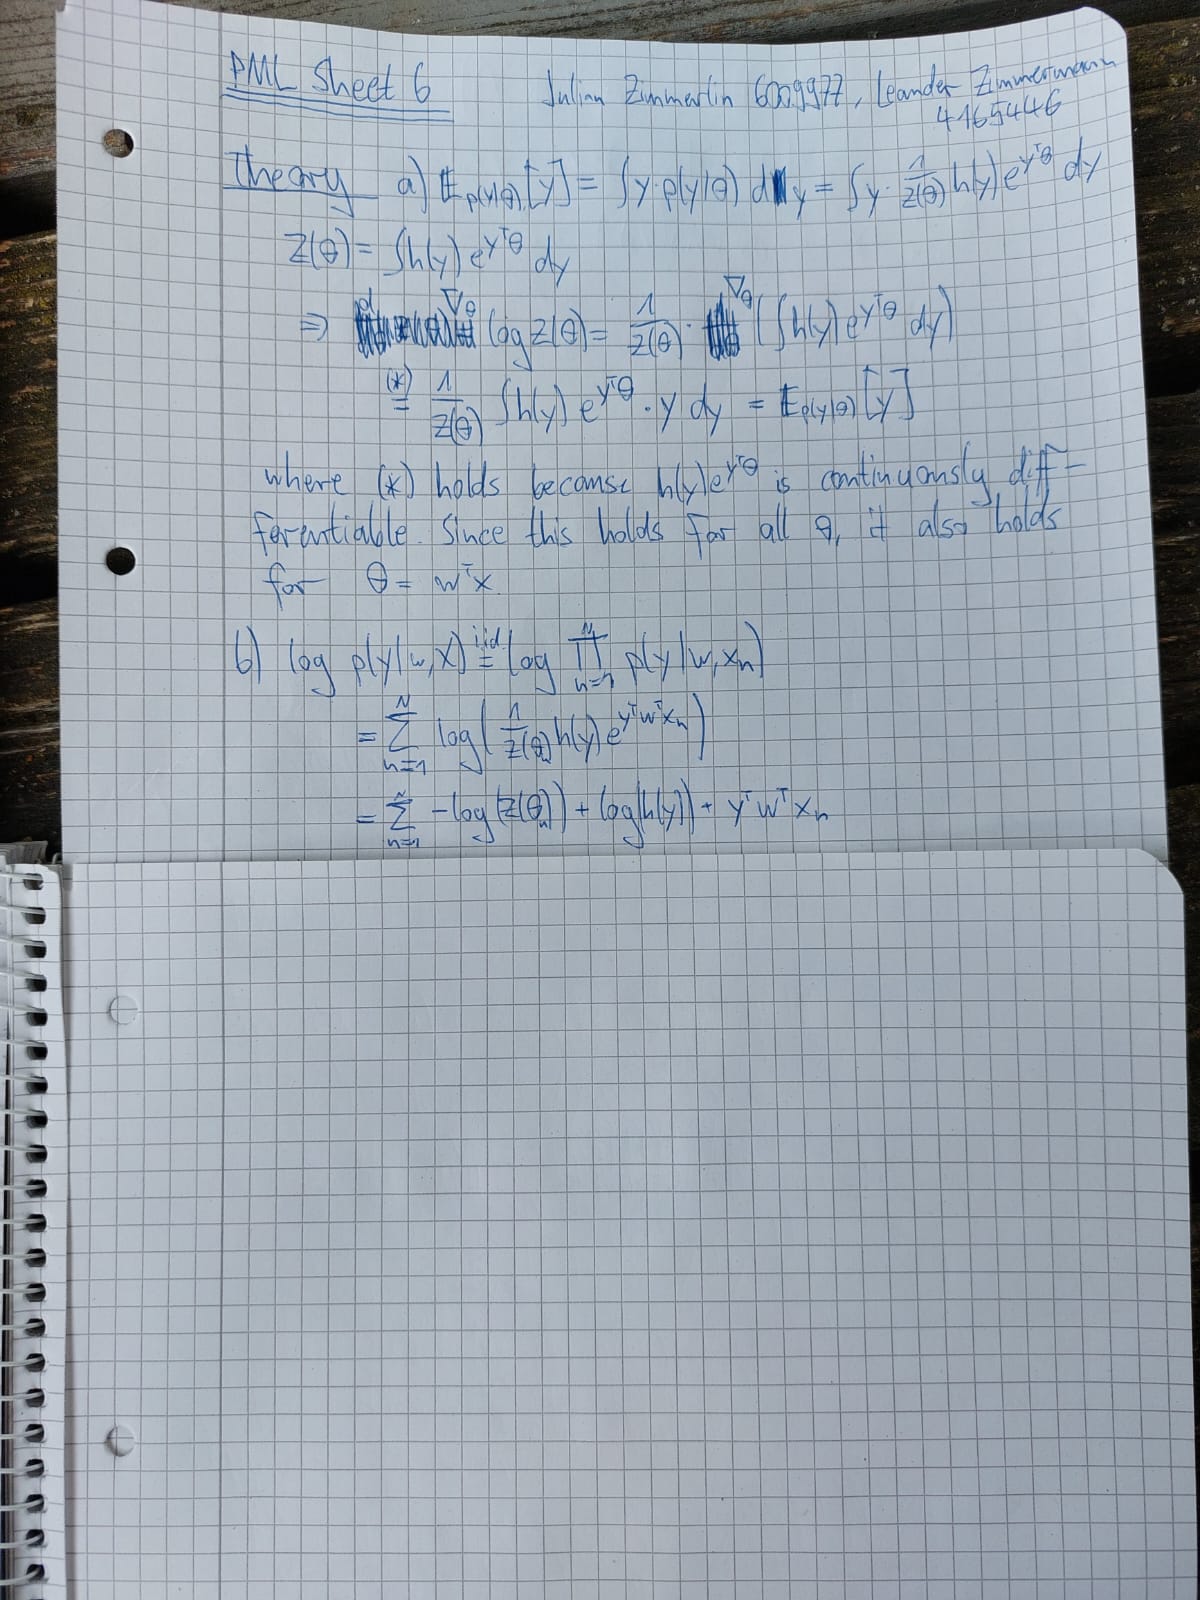 PML Sheet 6 Julian Zimmerlin 6009977, Leander Zimmermann
4165446
Theory a) 𝔼_{p(y|θ)}[y] = ∫y·p(y|θ) dy = ∫y · 1/Z(θ) h(y)e^{yᵀθ} dy
Z(θ) = ∫h(y) e^{yᵀθ} dy
⇒ ∇_θ log Z(θ) = 1/Z(θ) · ∇_θ (∫h(y) e^{yᵀθ} dy)
(*)= 1/Z(θ) ∫h(y) e^{yᵀθ} · y dy = 𝔼_{p(y|θ)}[y]
where (*) holds because h(y)e^{yᵀθ} is continuously dif-
ferentiable. Since this holds for all θ, it also holds
for θ = wᵀx.
b) log p(y|w,X) iid= log ∏_{n=1}^{N} p(y|w,x_n)
= ∑_{n=1}^{N} log( 1/Z(θ_n) h(y) e^{yᵀwᵀx_n} )
= ∑_{n=1}^{N} -log(Z(θ_n)) + log(h(y)) + yᵀwᵀx_n